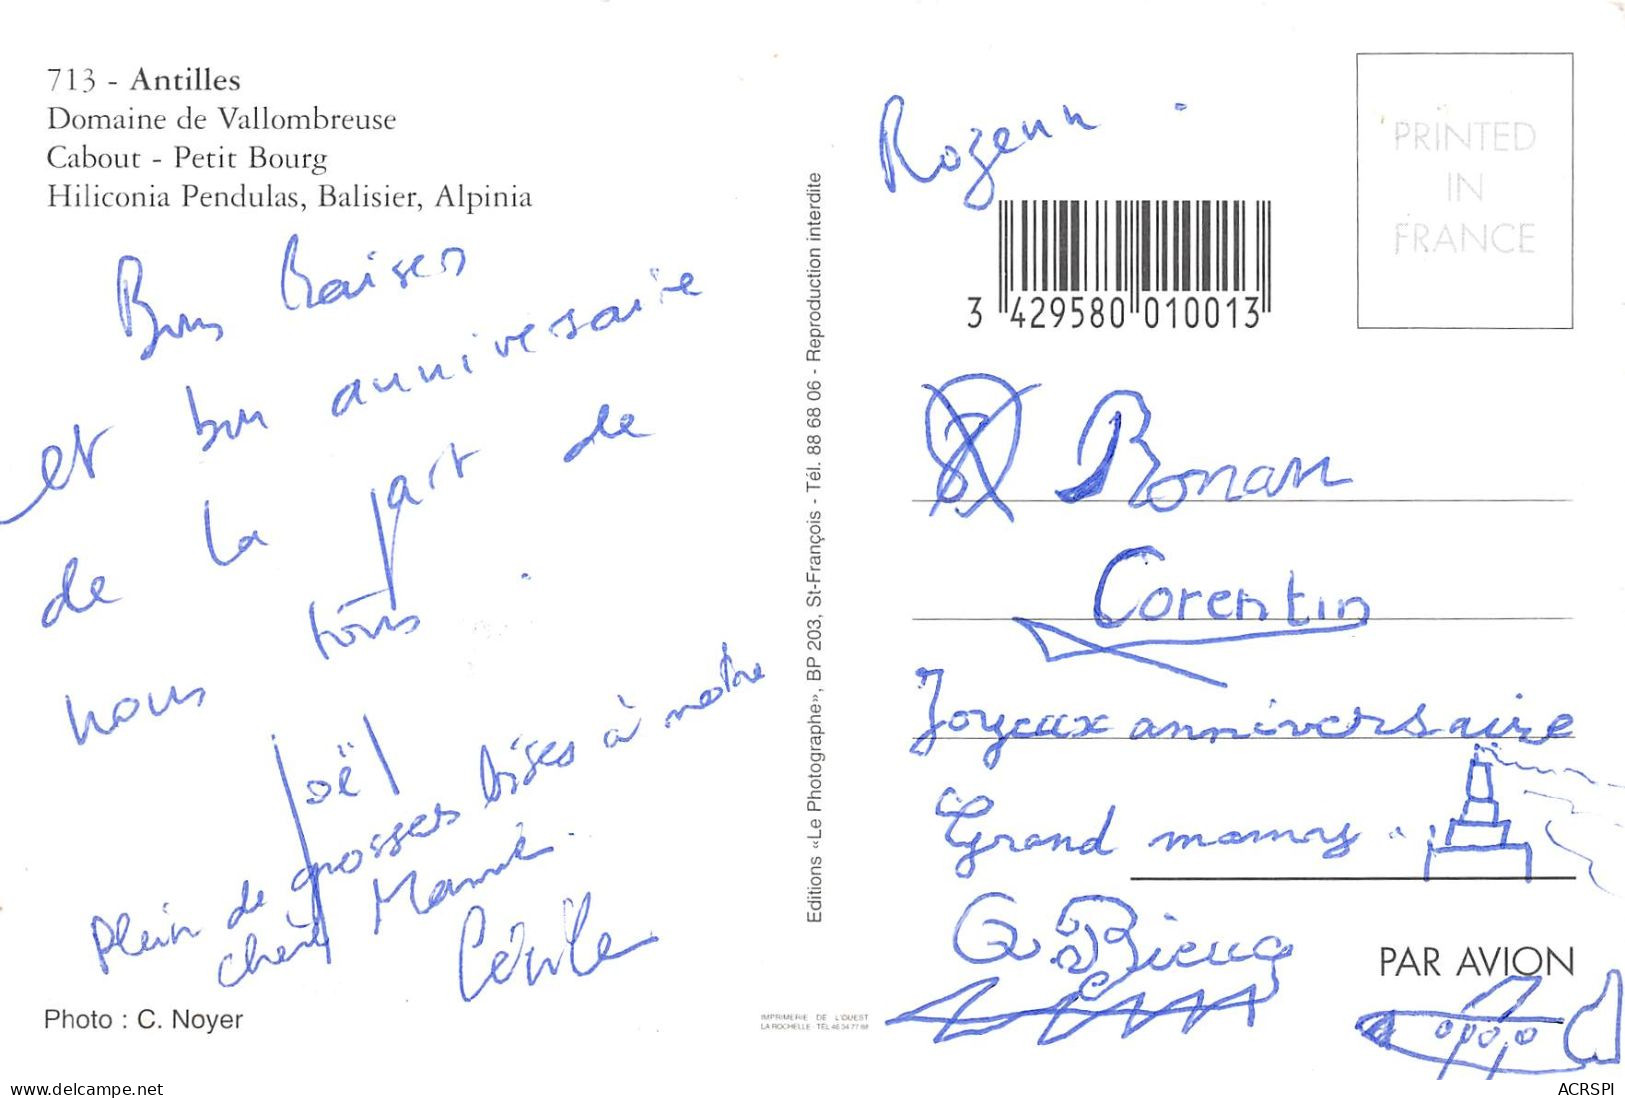 713 - Antilles
Domaine de Vallombreuse
Cabout - Petit Bourg
Hiliconia Pendulas, Balisier, Alpinia
Bons baisers
et bon anniversaire
de la part de
nous tous.
Joël
Plein de grosses bises à notre
chère Mamie.
Cécile
Photo : C. Noyer
Editions «Le Photographe», BP 203, St-François - Tél. 88 68 06 - Reproduction interdite
IMPRIMERIE DE L'OUEST
LA ROCHELLE - TÉL 46 34 77 88
Rozenn
3 429580 010013
PRINTED
IN
FRANCE
Ronan
Corentin
Joyeux anniversaire
Grand mamy
A
PAR AVION
www.delcampe.net
ACRSPI